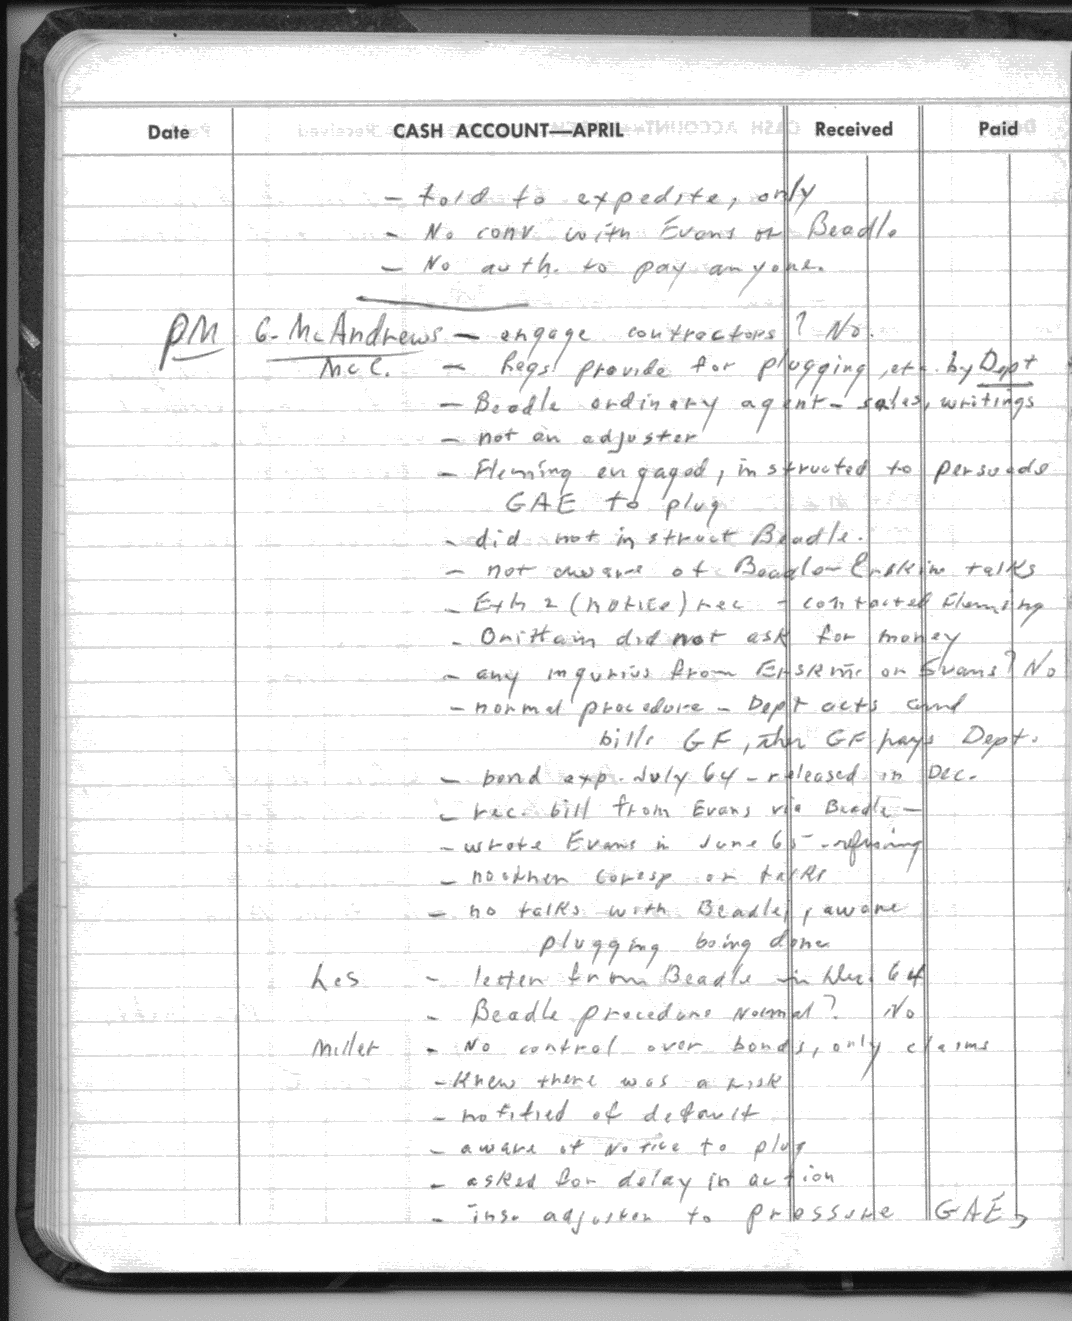 Date CASH ACCOUNT—APRIL Received Paid
- told to expedite, only
- No conv with Evans or Beadle
- No auth. to pay anyone.
PM G. McAndrews - engage contractors? No.
McC. - Regs provide for plugging, etc. by Dept
- Beadle ordinary agent - sales, writings
- not an adjuster
- Fleming engaged, instructed to persuade
GAE to plug
- did not instruct Beadle.
- not aware of Beadle-Erskine talks
- Exh 2 (notice) rec - contacted Fleming
- Brittain did not ask for money
- any inquiries from Erskine or Evans? No
- normal procedure - Dept acts and
bills GF, then GF pays Dept.
- bond exp. July 64 - released in Dec.
- rec. bill from Evans via Beadle -
- wrote Evans in June 65 - refusing
- no other coresp or talks
- no talks with Beadle, aware
plugging being done
Les - letter from Beadle in Dec. 64
- Beadle procedure Normal? No
Miller - No control over bonds, only claims
- Knew there was a risk
- notified of default
- aware of Notice to plug
- asked for delay in action
- insr adjuster to pressure GAE,